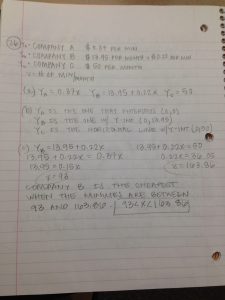 Yₐ = COMPANY A $0.37 PER MIN
COMPANY B $13.95 PER MONTH + $0.22 PER MIN
COMPANY C $50 PER MONTH
X = # OF MIN/MONTH
(a) Yₐ = 0.37x Y_B = 13.95 + 0.22x Y_C = 50
(b) Yₐ IS THE ONE THAT INTERCEPTS (0,0)
Y_B IS THE ONE W/ Y-INT (0,13.95)
Y_C IS THE HORIZONTAL LINE W/ Y-INT (0,50)
(c) Y_B = 13.95 + 0.22x 13.95 + 0.22x = 50
13.95 + 0.22x = 0.37x 0.22x = 36.05
13.95 = 0.15x x = 163.86
x = 93
COMPANY B IS THE CHEAPEST
WHEN THE MINUTES ARE BETWEEN
93 AND 163.86. 93 < x < 163.86